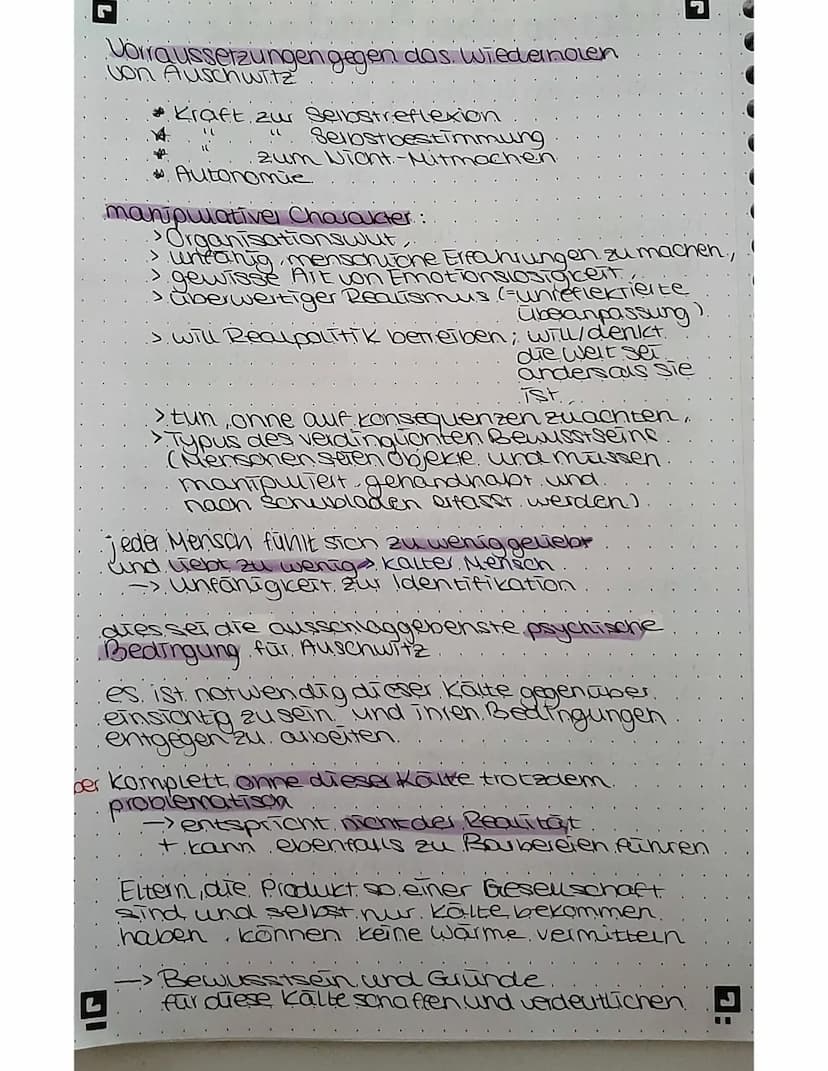 Vorraussetzungen gegen das Wiederholen
von Auschwitz
* Kraft zur Selbstreflexion
* " " Selbstbestimmung
* " zum Nicht-Mitmachen
* Autonomie
manipulativer Charakter:
> Organisationswut,
> unfähig, menschliche Erfahrungen zu machen,
> gewisse Art von Emotionslosigkeit,
> überwertiger Realismus (=unreflektierte
Übeanpassung)
> will Realpolitik betreiben; will/denkt
die Welt sei
anders als sie
ist,
> tun, ohne auf Konsequenzen zu achten,
> Typus des verdinglichten Bewusstseins
(Menschen seien Objekte und müssen
manipuliert, gehandhabt und
nach Schubladen erfasst werden)
jeder Mensch fühlt sich zu wenig geliebt
und liebt zu wenig → kalter Mensch
→ Unfähigkeit zur Identifikation
dies sei die ausschlaggebenste psychische
Bedingung für Auschwitz
es ist notwendig dieser Kälte gegenüber
einsichtig zu sein und ihren Bedingungen
entgegen zu arbeiten
komplett ohne dieser Kälte trotzdem
problematisch
→ entspricht nicht der Realität
+ kann ebenfalls zu Barbereien führen
Eltern, die Produkt so einer Gesellschaft
sind und selbst nur Kälte bekommen
haben, können keine Wärme vermitteln
→ Bewusstsein und Gründe
für diese Kälte schaffen und verdeutlichen